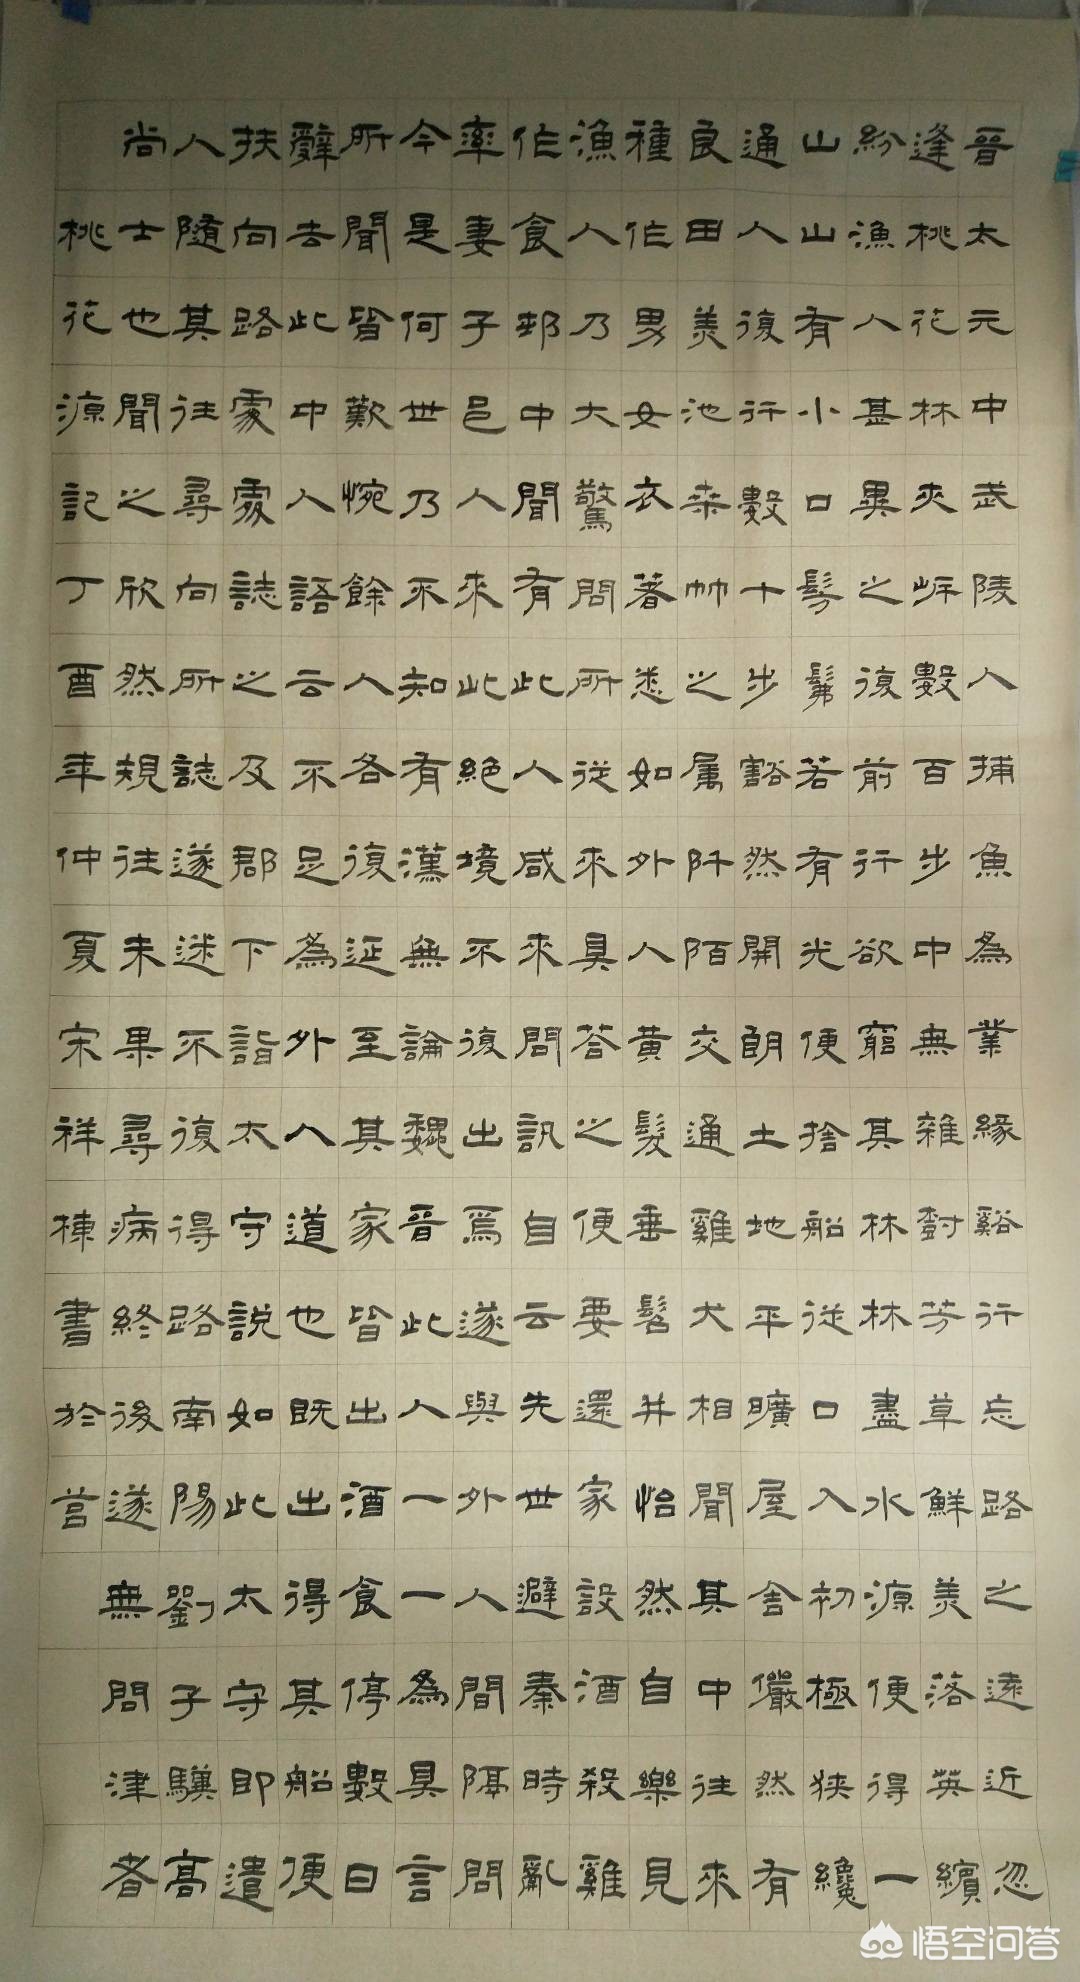 晋太元中武陵人捕魚為業緣谿行忘路之遠近忽
逢桃花林夾岸數百步中無雜樹芳草鮮美落英繽
紛漁人甚異之復前行欲窮其林林盡水源便得一
山山有小口髣髴若有光便捨船從口入初極狹纔
通人復行數十步豁然開朗土地平曠屋舍儼然有
良田美池桑竹之属阡陌交通雞犬相聞其中往來
種作男女衣著悉如外人黃髮垂髫并怡然自樂見
漁人乃大驚問所從來具答之便要還家設酒殺雞
作食邨中聞有此人咸來問訊自云先世避秦時亂
率妻子邑人來此絕境不復出焉遂與外人間隔問
今是何世乃不知有漢無論魏晋此人一一為具言
所聞皆歎惋餘人各復延至其家皆出酒食停數日
辭去此中人語云不足為外人道也既出得其船便
扶向路處處誌之及郡下詣太守說如此太守即遣
人隨其往尋向所誌遂迷不復得路南陽劉子驥高
尚士也聞之欣然規往未果尋病終後遂無問津者
桃花源記丁酉年仲夏宋祥棟書於莒
悟空问答